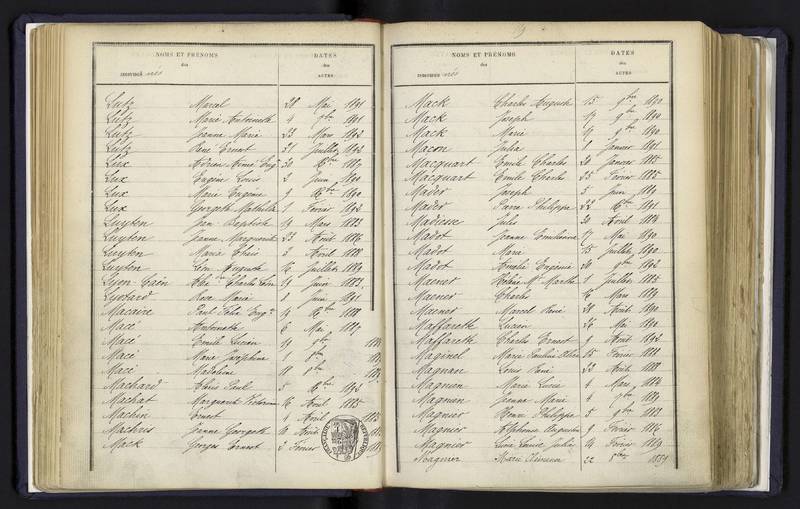 NOMS ET PRÉNOMS
des
INDIVIDUS nés
DATES
des
ACTES
Lutz Marcel 28 Mai 1891
Lutz Marie Antoinette 4 1891
Lutz Jeanne Marie 23 Mars 1892
Lutz René Ernest 31 Juillet 1892
Lux 30 Xbre
Lux Eugène Louis 2 Juin 1890
Lux Marie Eugénie 9 Xbre 1890
Lux Georgette Mathilde 1 Février 1892
Luyten Jean Baptiste 19 Mars 1883
Luyten Jeanne Marguerite 23 Août 1886
Luyten Maria 3 Avril 1888
Luyten Léon Auguste 16 Juillet 1889
Lyon-Caën Charles Léon 29 Juin 1882
Lyotard Rose Marie 8 Juin 1891
Macaire Paul Félix 14 Xbre 1888
Macé Antoinette 6 Mai 1887
Macé Emile Lucien 29
Macé Marie Joséphine 1
Macé Madeleine 18
Machard Paul 5 Xbre 1892
Machat Marguerite Victorine 16 Avril 1885
Machin Ernest 4 Avril
Machris Jeanne Georgette 16 Août
Mack Georges Ernest 2 Février
NOMS ET PRÉNOMS
des
INDIVIDUS nés
DATES
des
ACTES
Mack Charles Auguste 15 9bre 1890
Mack Joseph 17 9bre 1890
Mack Marie 17 9bre 1890
Macon Julia 1 Janvier 1891
Macquart Emile Charles 20 Janvier 1885
Macquart Emile Charles 25 Février 1885
Mader Joseph 5 Juin 1889
Mader Pierre Philippe 23 Xbre 1891
Madiesse Jules 30 Avril 1884
Madot Jeanne Emilienne 17 Mai 1890
Madot Marie 15 Juillet 1890
Madot Amélie Eugénie 26 9bre 1892
Maener Hélène Marthe 1 Juillet 1885
Maener Charles 16 Mars 1889
Maener Marcel René 28 Août 1890
Maffareth Lucien 26 Mai 1890
Maffareth Charles Ernest 9 Août 1892
Maginel Marie Pauline 15 Février 1888
Magnan Louis René 23 Août 1888
Magnen Marie Lucie 4 Mars 1884
Magnen Jeanne Marie 4 1889
Magnier Henri Philippe 5 9bre 1883
Magnier Alphonse Augustin 9 Février 1886
Magnier Louise Julie 14 Février 1889
Magnier Marie Clémence 22 1889